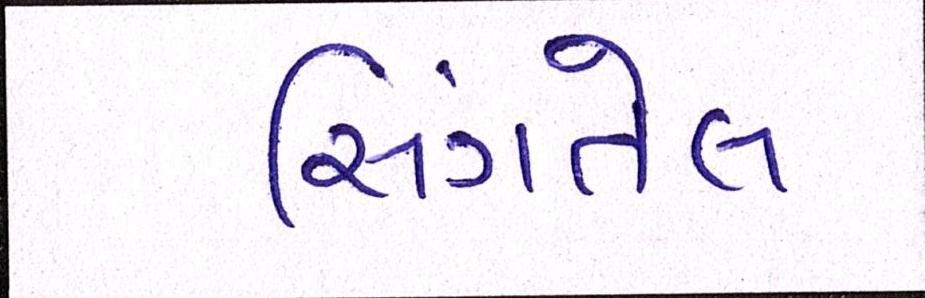 સિંગતેલ